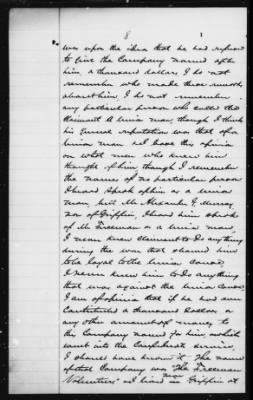 8
1
was upon the idea that he had refused
to give the Company named after
him, a thousand dollars. I do not
remember who made these remarks
about him, I do not remember
any particular person who called the
Claimant a Union man, though I think
his general reputation was that of a
Union man. I have this opinion
on what men who knew him
thought of him, though I remember
the names of no particular person
I heard speak of him as a Union
man, but Mr Alexander G. Murray
now of Griffin, I heard him speak
of Mr Freeman as a Union man,
I never knew claimant to do anything
during the war that showed him
to be loyal to the Union cause,
I never knew him to do anything
that was against the Union cause,
I am of opinion that if he had ever
contributed a thousand dollars or
any other amount of money to
this Company named for him, which
went into the Confederate service,
I should have known it. The name
of that Company was "The Freeman
Volunteers" I lived near Griffin at